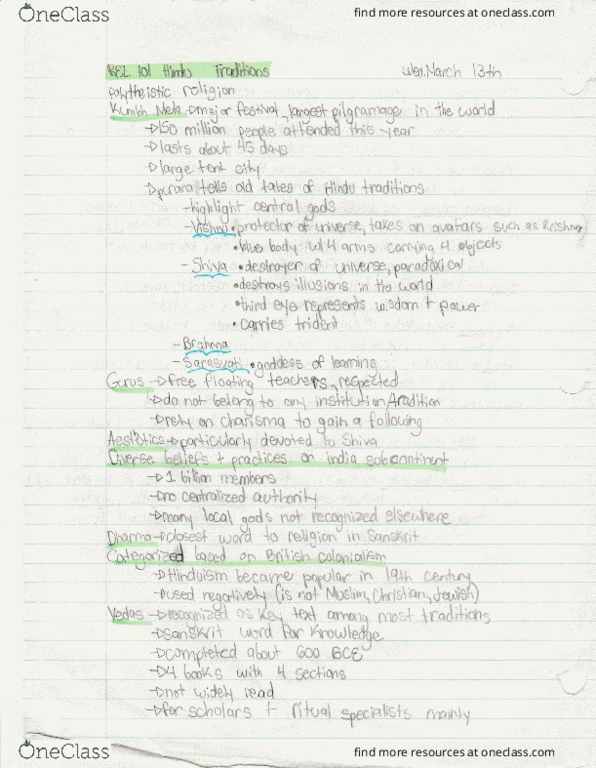 OneClass
find more resources at oneclass.com
REL 101 Hindu Traditions
Wed. March 13th
polytheistic religion
Kumbh Mela → major festival, largest pilgramage in the world
→ 150 million people attended this year
→ lasts about 45 days
→ large tent city
→ purana tells old tales of Hindu traditions
- highlight central gods
- Vishnu • protector of universe, takes on avatars such as Krishna
• blue body w/ 4 arms carrying 4 objects
- Shiva • destroyer of universe, paradoxical
• destroys illusions in the world
• third eye represents wisdom + power
• carries trident
- Brahma
- Sarasvati • goddess of learning
Gurus → free floating teachers, respected
→ do not belong to any institution/tradition
→ rely on charisma to gain a following
Aestetics → particularly devoted to Shiva
Diverse beliefs + practices on India subcontinent
→ 1 billion members
→ no centralized authority
→ many local gods not recognized elsewhere
Dharma → closest word to religion in Sanskrit
Categorized based on British colonialism
→ Hinduism became popular in 19th century
→ used negatively (is not Muslim, Christian, Jewish)
Vedas → recognized as key text among most traditions
→ sanskrit word for knowledge
→ completed about 600 BCE
→ 4 books with 4 sections
→ not widely read
→ for scholars + ritual specialists mainly
OneClass
find more resources at oneclass.com